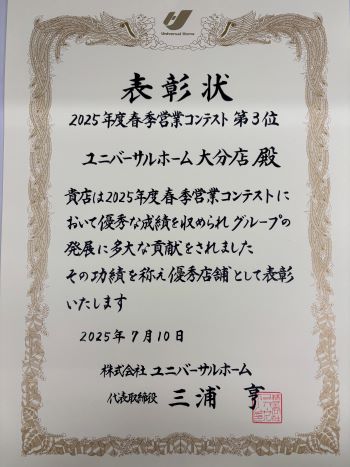 Universal Home
表彰状
2025年度春季営業コンテスト 第3位
ユニバーサルホーム 大分店 殿
貴店は2025年度春季営業コンテストに
おいて優秀な成績を収められグループの
発展に多大な貢献をされました
その功績を称え優秀店舗として表彰
いたします
2025年7月10日
株式会社 ユニバーサルホーム
代表取締役 三浦 亨